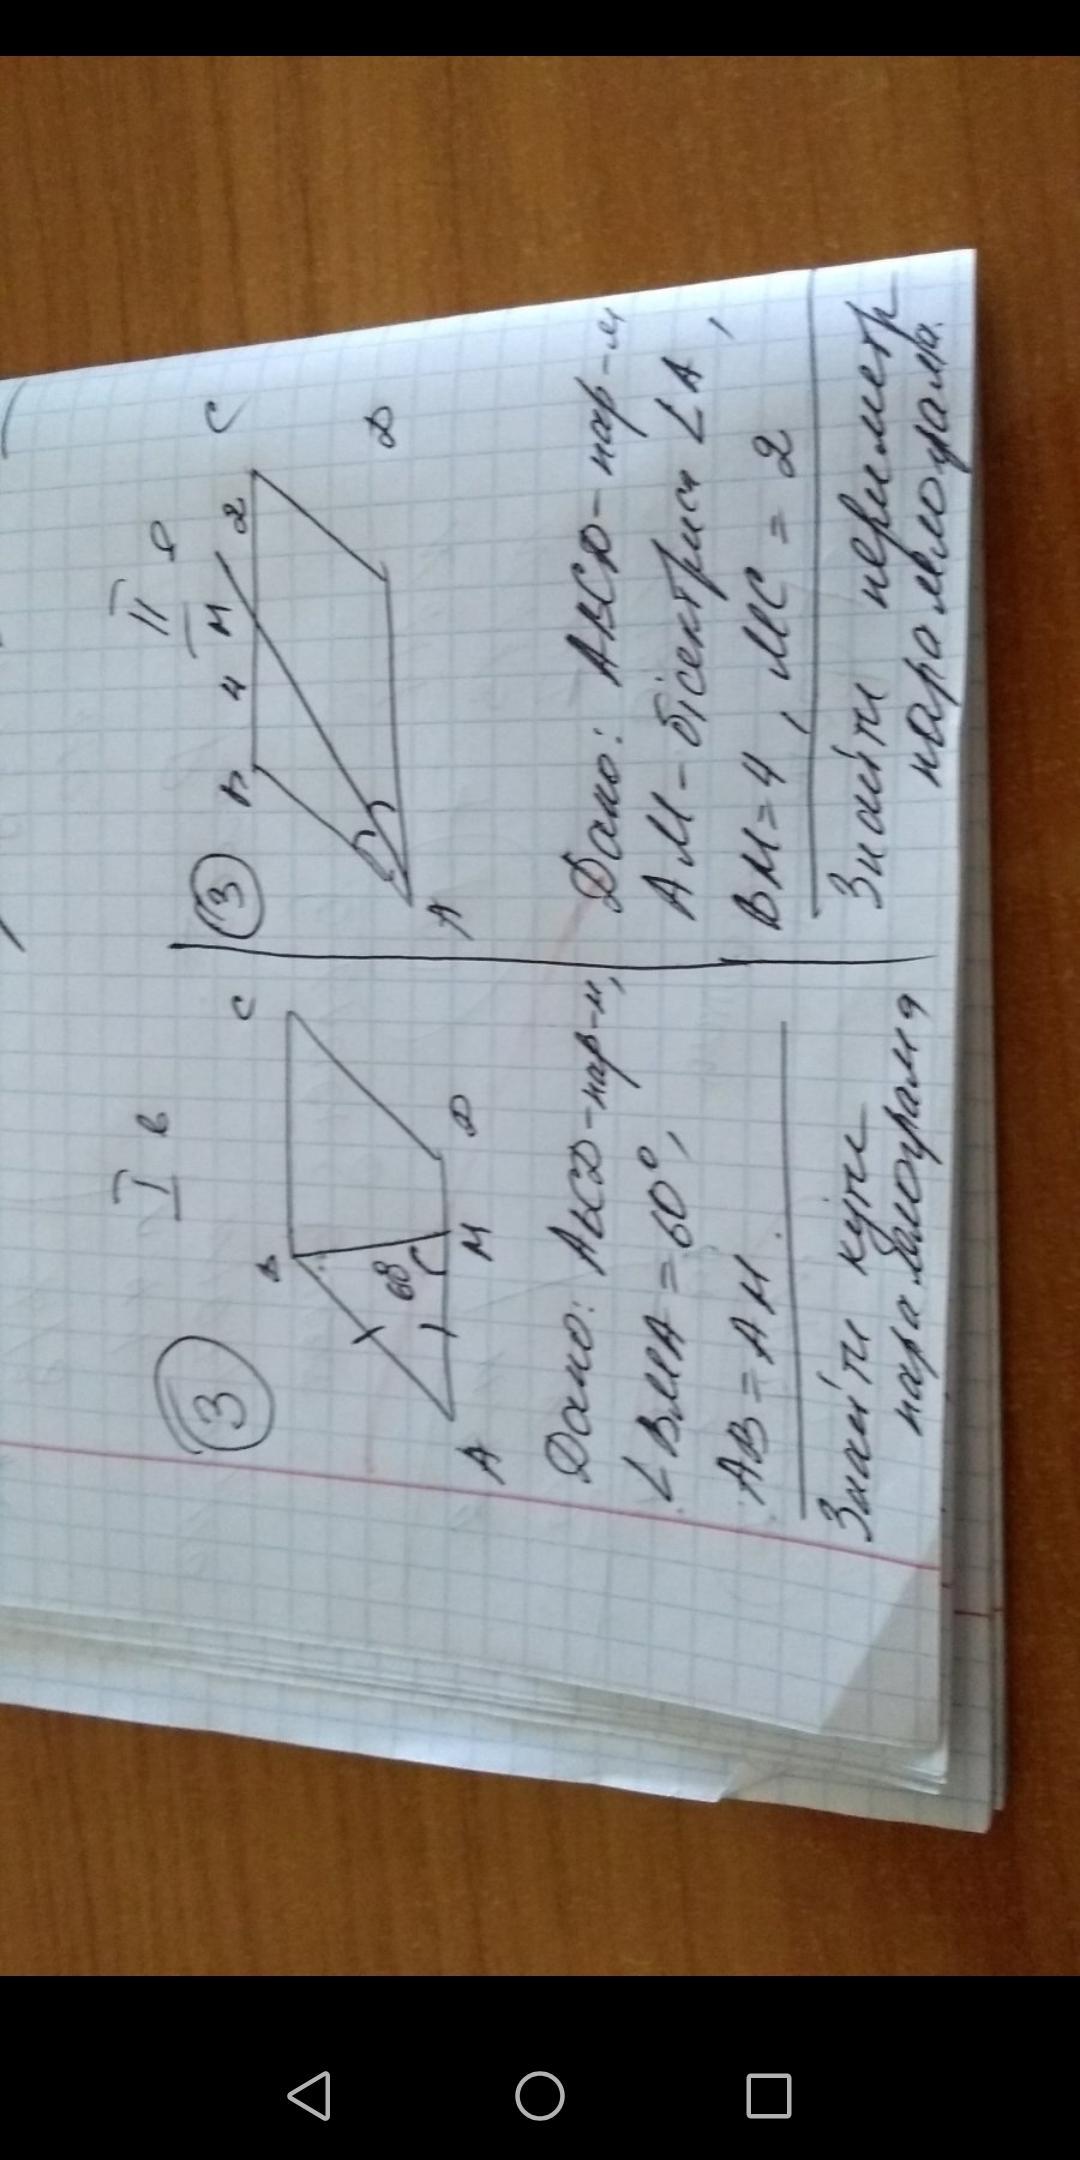 I в
3
B
C
60
A
M
D
Дано: ABCD-пар-м,
∠BMA = 60°,
AB = AM
Знайти кути
паралелограма
II в
3
B 4 M 2 C
A
D
Дано: ABCD-пар-м
AM-бісектриса ∠A,
BM=4, MC=2
Знайти периметр
паралелограма.